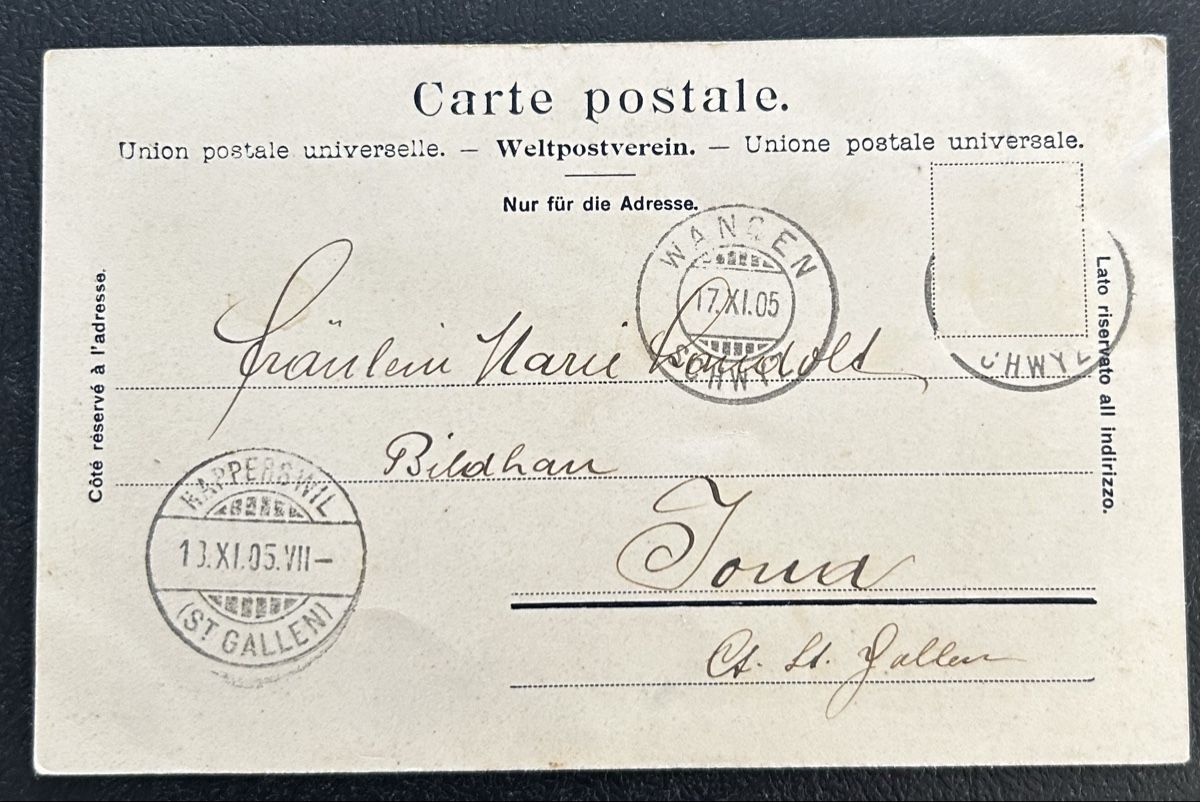 Carte postale.
Union postale universelle. — Weltpostverein. — Unione postale universale.
Nur für die Adresse.
WANGEN
17.XI.05
SCHWYZ
CHWYZ
Côté réservé à l'adresse.
Lato riservato all indirizzo.
Fräulein Marie
Bildhau
RAPPERSWIL
XI.05.VII–
(ST GALLEN)
Jona
Ct. St. Gallen